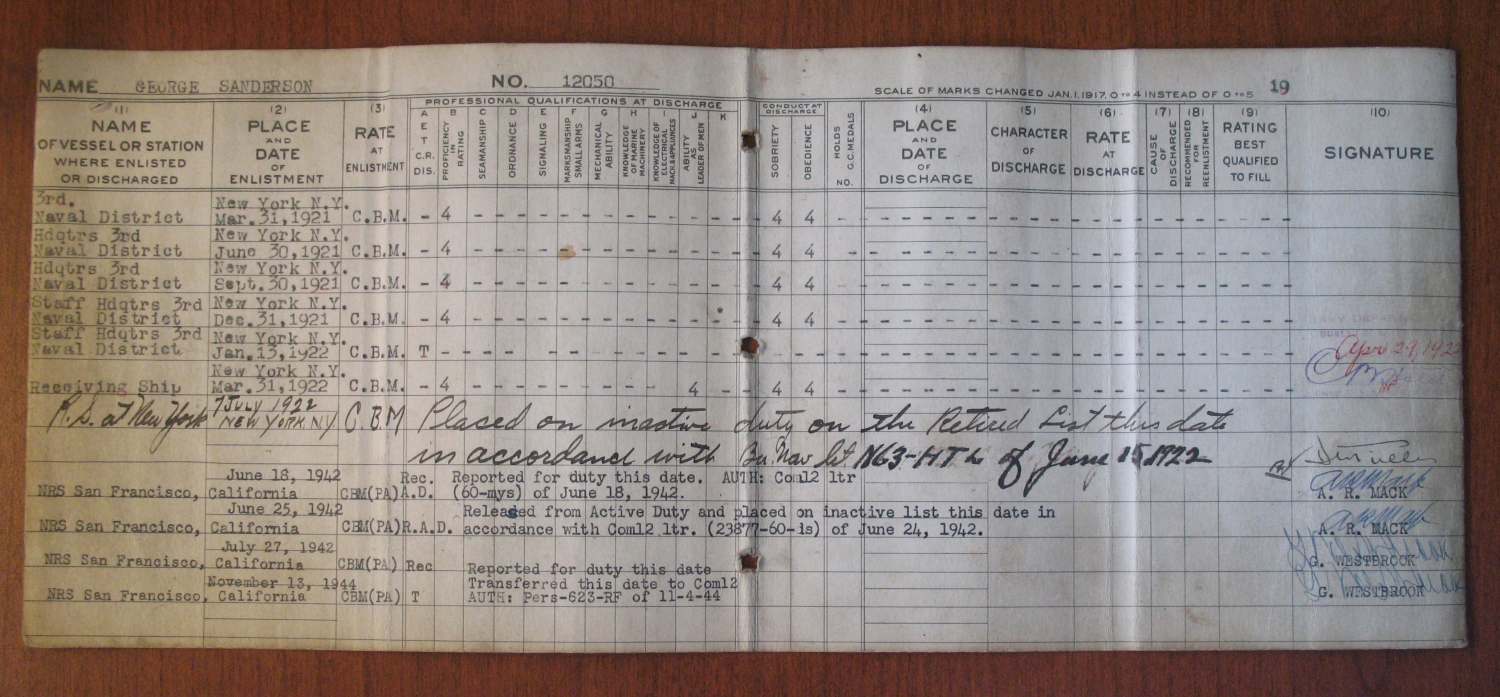 NAME GEORGE SANDERSON NO. 12050 19
SCALE OF MARKS CHANGED JAN. 1. 1917, 0 TO 4 INSTEAD OF 0 TO 5
PROFESSIONAL QUALIFICATIONS AT DISCHARGE
CONDUCT AT DISCHARGE
(1) NAME OF VESSEL OR STATION WHERE ENLISTED OR DISCHARGED
(2) PLACE AND DATE OF ENLISTMENT
(3) RATE AT ENLISTMENT
A E T C.R. DIS.
B PROFICIENCY IN RATING
C SEAMANSHIP
D ORDNANCE
E SIGNALING
MARKSMANSHIP SMALL ARMS
G MECHANICAL ABILITY
H KNOWLEDGE OF MARINE MACHINERY
I KNOWLEDGE OF ELECTRICAL MACH. & APPLIANCES
ABILITY AS LEADER OF MEN
K
SOBRIETY
OBEDIENCE
HOLDS C.C. MEDALS NO.
(4) PLACE AND DATE OF DISCHARGE
(5) CHARACTER OF DISCHARGE
(6) RATE AT DISCHARGE
(7) CAUSE OF DISCHARGE
(8) RECOMMENDED FOR REENLISTMENT
(9) RATING BEST QUALIFIED TO FILL
(10) SIGNATURE
3rd. New York N.Y.
Naval District Mar. 31, 1921 C.B.M. - 4 - - - - - - - - - 4 4 -
Hdqtrs 3rd New York N.Y.
Naval District June 30, 1921 C.B.M. - 4 - - - - - - - - - 4 4 -
Hdqtrs 3rd New York N.Y.
Naval District Sept. 30, 1921 C.B.M. - 4 - - - - - - - - - 4 4 -
Staff Hdqtrs 3rd New York N.Y.
Naval District Dec. 31, 1921 C.B.M. - 4 - - - - - - - - - 4 4 -
Staff Hdqtrs 3rd New York N.Y.
Naval District Jan. 13, 1922 C.B.M. T - - - - - - - - - - - - -
Apr 29, 1922
New York N.Y.
Receiving Ship Mar. 31, 1922 C.B.M. - 4 - - - - - - - 4 - 4 4 -
R.S. at New York 7 JULY 1922 NEW YORK NY C.B.M Placed on inactive duty on the Retired List this date
in accordance with Bu Nav let N63-HTL of June 15 1922
June 18, 1942 Rec. Reported for duty this date. AUTH: Com12 ltr
NRS San Francisco, California CBM(PA) A.D. (60-mys) of June 18, 1942. A. R. MACK
June 25, 1942 Released from Active Duty and placed on inactive list this date in
NRS San Francisco, California CBM(PA) R.A.D. accordance with Com12 ltr. (23877-60-is) of June 24, 1942. A. R. MACK
July 27, 1942
NRS San Francisco, California CBM(PA) Rec Reported for duty this date G. WESTBROOK
November 13, 1944 Transferred this date to Com12
NRS San Francisco, California CBM(PA) T AUTH: Pers-623-RF of 11-4-44 G. WESTBROOK